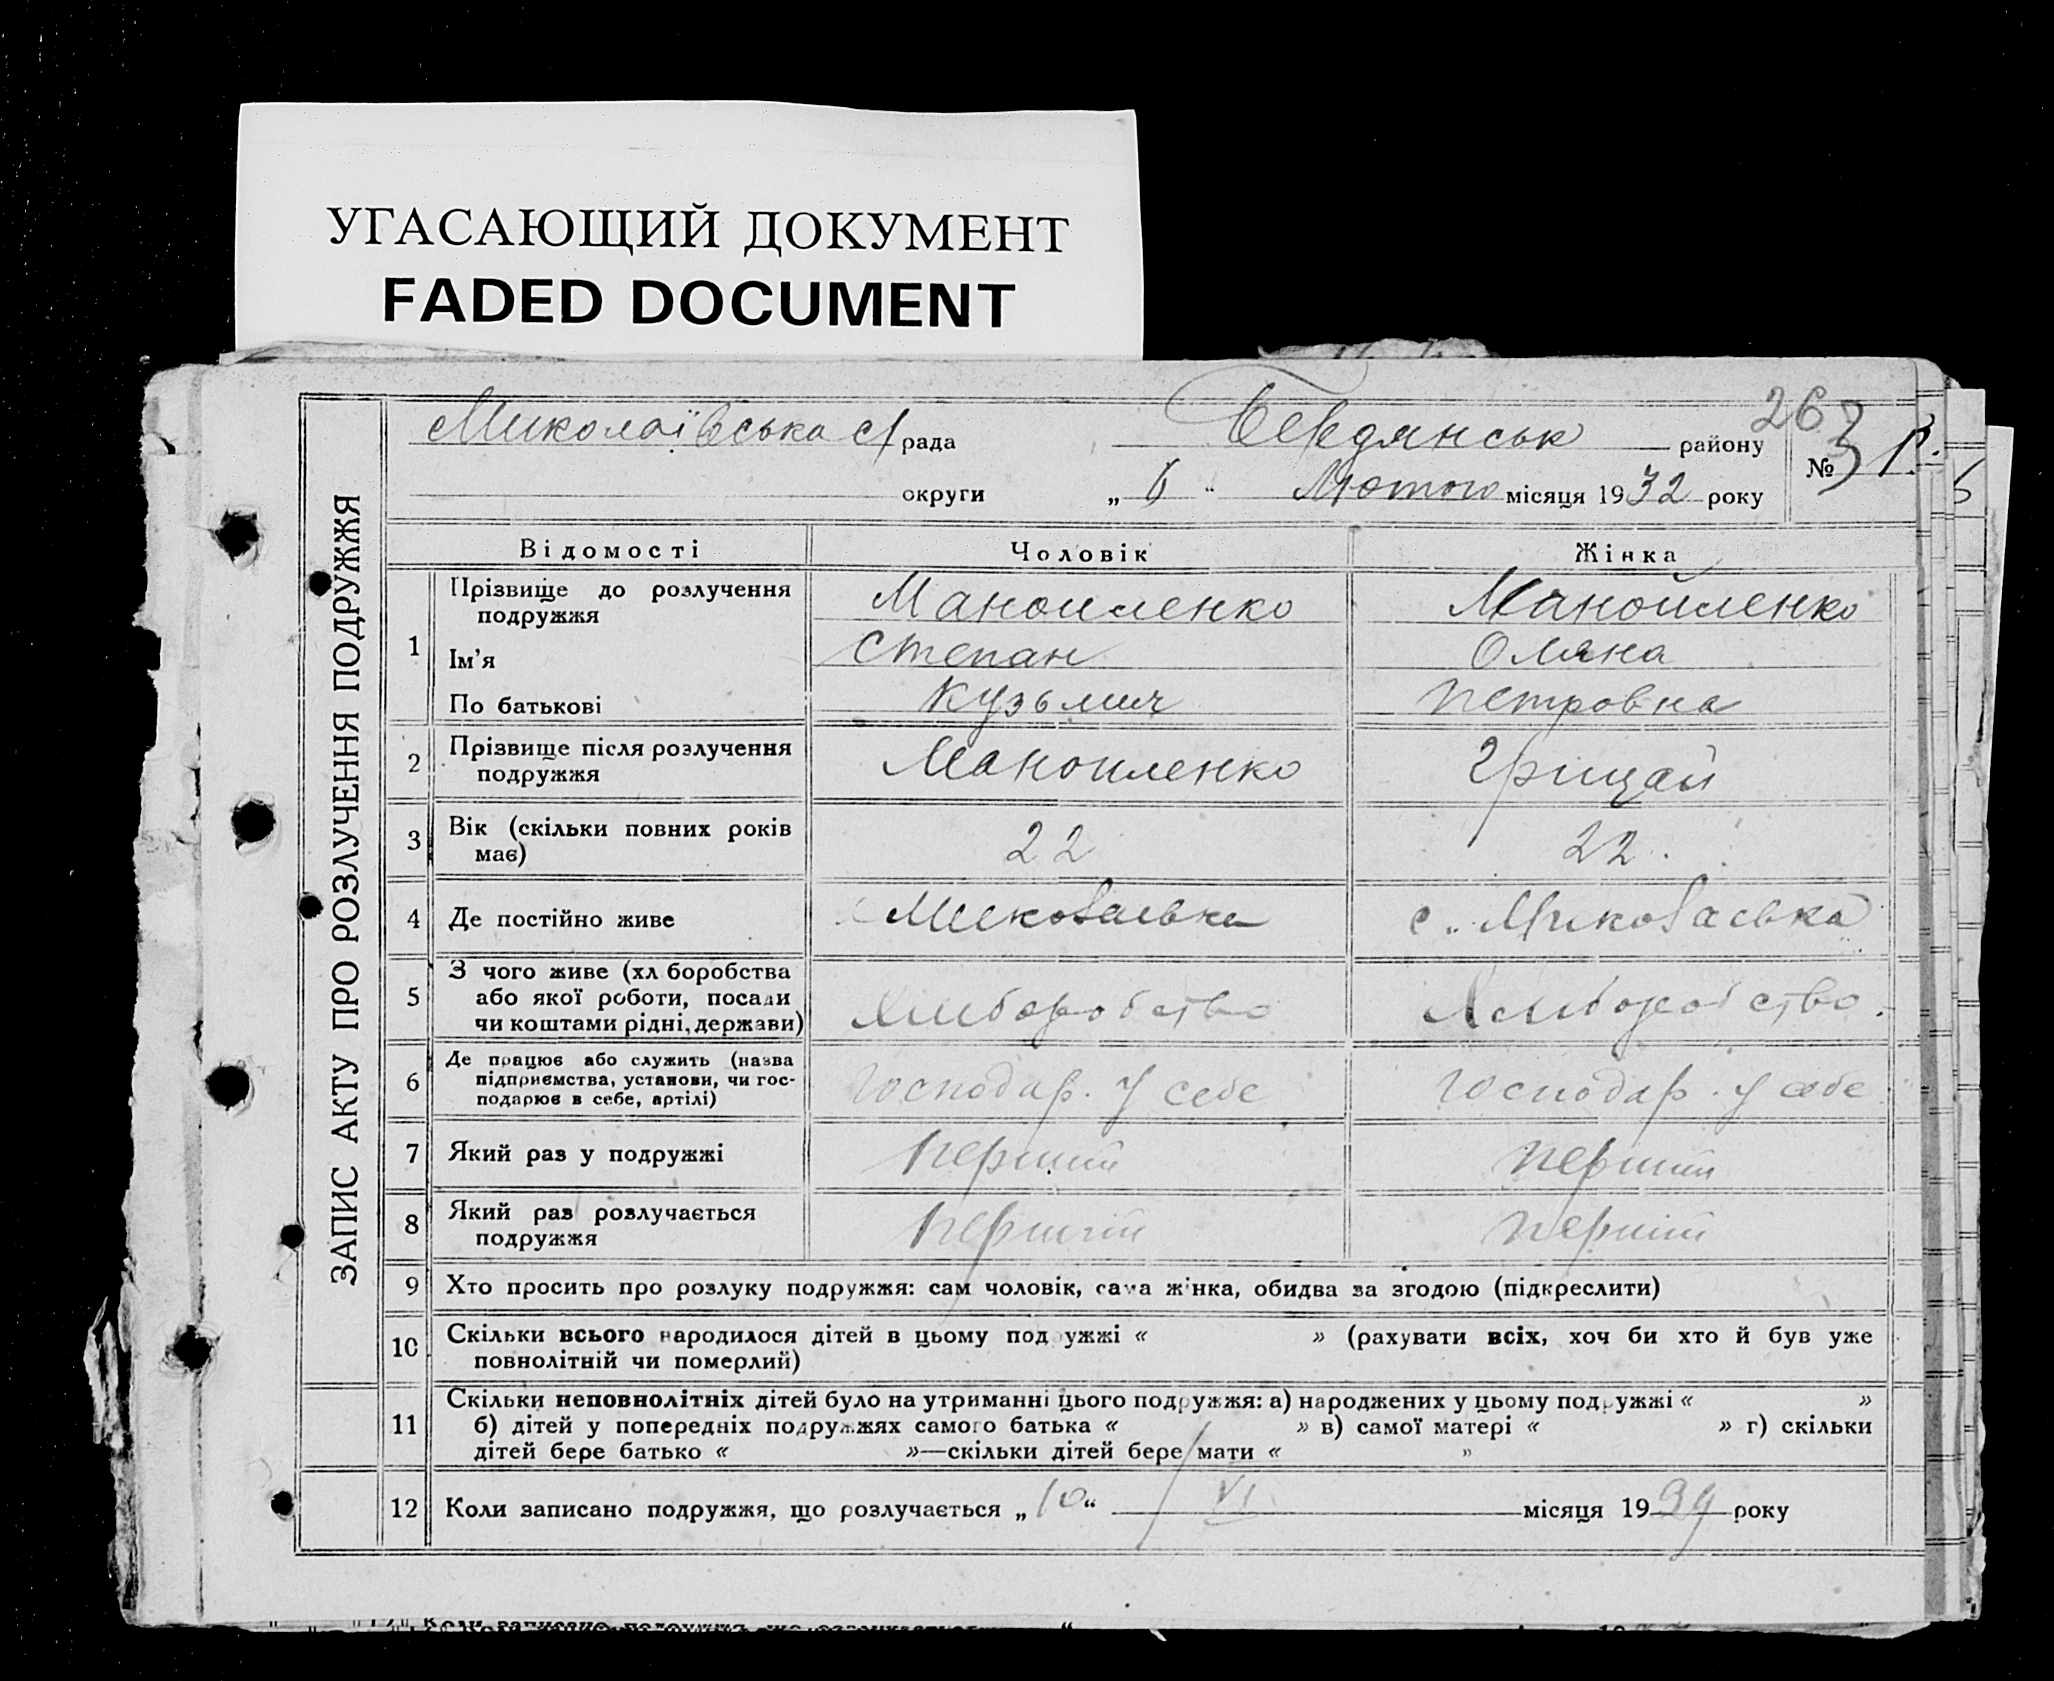 УГАСАЮЩИЙ ДОКУМЕНТ
FADED DOCUMENT
26
ЗАПИС АКТУ ПРО РОЗЛУЧЕННЯ ПОДРУЖЖЯ
Миколаївська с/рада Бердянськ району № 3 р.
округи „6“ Лютого місяця 1932 року
Відомості Чоловік Жінка
1 Прізвище до розлучення подружжя Маноиленко Манойленко
Ім'я Степан Оляна
По батькові Кузьмич Петровна
2 Прізвище після розлучення подружжя Маноиленко Грицай
3 Вік (скільки повних років має) 22 22.
4 Де постійно живе с. 
5 З чого живе (хліборобства або якої роботи, посади чи коштами рідні, держави) Хліборобство Хліборобство.
6 Де працює або служить (назва підприємства, установи, чи господарює в себе, артілі) Господар. у себе Господар. у себе
7 Який раз у подружжі Перший Перший
8 Який раз розлучається подружжя Перший Перший
9 Хто просить про розлуку подружжя: сам чоловік, сама жінка, обидва за згодою (підкреслити)
10 Скільки всього народилося дітей в цьому подружжі « » (рахувати всіх, хоч би хто й був уже
повнолітній чи померлий)
11 Скільки неповнолітніх дітей було на утриманні цього подружжя: а) народжених у цьому подружжі « »
б) дітей у попередніх подружжях самого батька « » в) самої матері « » г) скільки
дітей бере батько « »—скільки дітей бере мати « »
12 Коли записано подружжя, що розлучається „10“ VI місяця 19 року